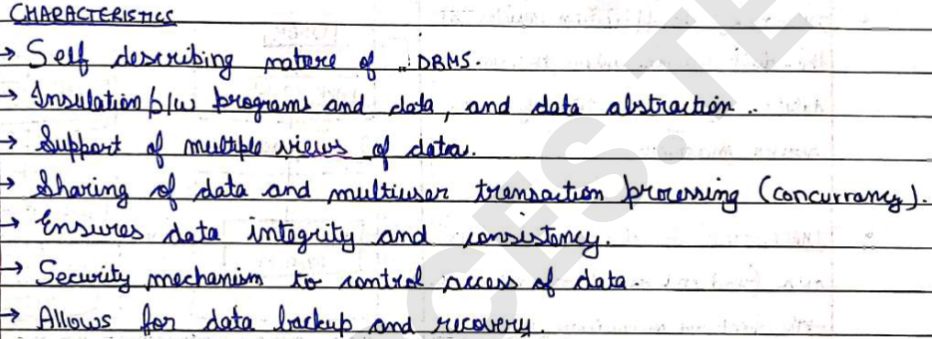 CHARACTERISTICS
→ Self describing nature of DBMS.
→ Insulation b/w programs and data, and data abstraction.
→ Support of multiple views of data.
→ Sharing of data and multiuser transaction processing (concurrancy).
→ Ensures data integrity and consistency.
→ Security mechanism to control access of data.
→ Allows for data backup and recovery.